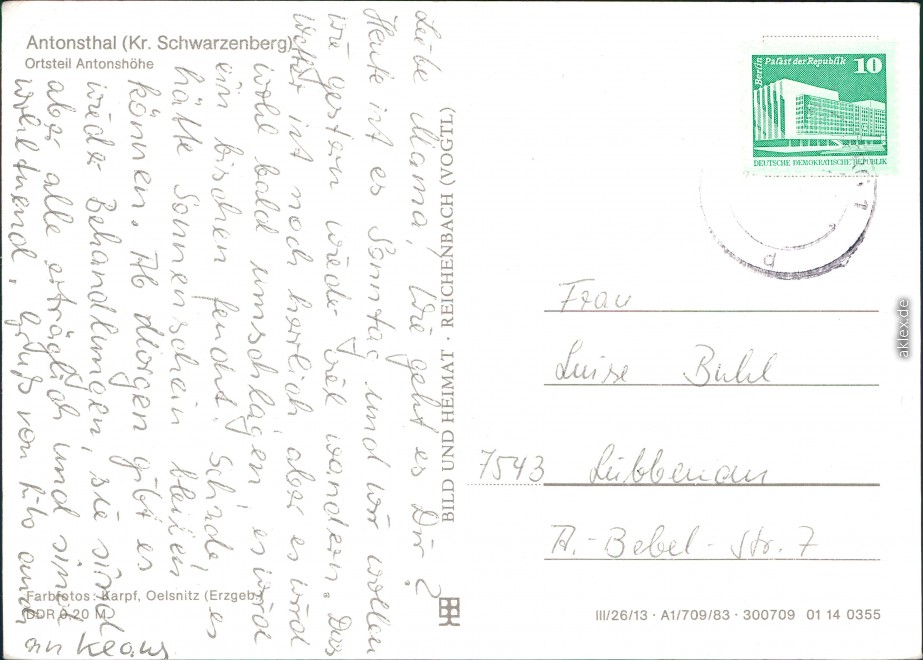 Antonsthal (Kr. Schwarzenberg)
Ortsteil Antonshöhe
Liebe Mama, Wie geht es Dir?
Heute ist es Sonntag und wir wollen
wie gestern wieder viel wandern. Das
Wetter ist noch herrlich aber es wird
wohl bald umschlagen, es wird
ein bischen feucht. Schade, es
hätte Sonnenschein bleiben
können. Ab Morgen gibt es
wieder Behandlungen, sie sind
aber alle erträglich und sind
wohltuend. Gruß von
an Klaus
BILD UND HEIMAT · REICHENBACH (VOGTL)
Farbfotos: Karpf, Oelsnitz (Erzgeb.)
DDR 0,20 M
Berlin Palast der Republik 10
DEUTSCHE DEMOKRATISCHE REPUBLIK
Frau
Luise Buhl
7543 Lübbenau
A.-Bebel-Str. 7
III/26/13 · A1/709/83 · 300709 01 14 0355
aklex.de